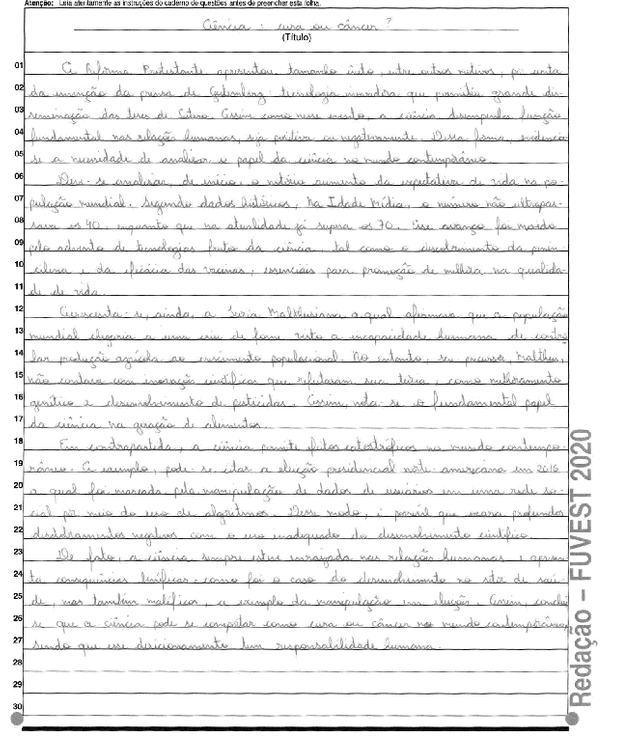 Atenção: Leia atentamente as instruções do caderno de questões antes de preencher esta folha.
Ciência: cura ou câncer?
(Título)
01 A Reforma Protestante apresentou tamanho êxito, entre outros motivos, por conta
02 da invenção da prensa de Gutenberg: tecnologia inovadora que permitiu grande dis-
03 seminação das teses de Lutero. Assim como nesse evento, a ciência desempenha função
04 fundamental nas relações humanas, seja positiva ou negativamente. Dessa forma, evidencia-
05 se a necessidade de analisar o papel da ciência no mundo contemporâneo.
06 Deve-se analisar, de início, o notório aumento da expectativa de vida na po-
07 pulação mundial. Segundo dados históricos, na Idade Média, o número não ultrapas-
08 sava os 40 enquanto que na atualidade já supera os 70. Esse avanço foi movido
09 pelo advento de tecnologias fruto da ciência, tal como o descobrimento da peni-
10 cilina e da eficácia das vacinas, essenciais para promoção de melhora na qualida-
11 de de vida.
12 Acrescenta-se, ainda, a Teoria Malthusiana a qual afirmava que a população
13 mundial chegaria a uma crise de fome visto a incapacidade humana de contro-
14 lar produção agrícola ao crescimento populacional. No entanto, seu precursor, Malthus,
15 não contava com inovações científicas que refutariam sua teoria, como melhoramento
16 genético e desenvolvimento de pesticidas. Assim, nota-se o fundamental papel
17 da ciência na geração de alimentos.
18 Em contrapartida, a ciência permite feitos catastróficos no mundo contempo-
19 râneo. A exemplo, pode-se citar a eleição presidencial norte-americana em 2016
20 a qual foi marcada pela manipulação de dados de usuários em uma rede so-
21 cial por meio do uso de algoritmos. Desse modo, é possível que ocorra profundos
22 desdobramentos negativos com o uso inadequado do desenvolvimento científico.
23 De fato, a ciência sempre esteve enraizada nas relações humanas e apresen-
24 ta consequências benéficas como foi o caso do desenvolvimento no setor de saú-
25 de, mas também maléficas, a exemplo da manipulação em eleições. Assim, conclui-
26 se que a ciência pode se comportar como cura ou câncer no mundo contemporâneo,
27 sendo que esse direcionamento tem responsabilidade humana.
28
29
30
Redação – FUVEST 2020